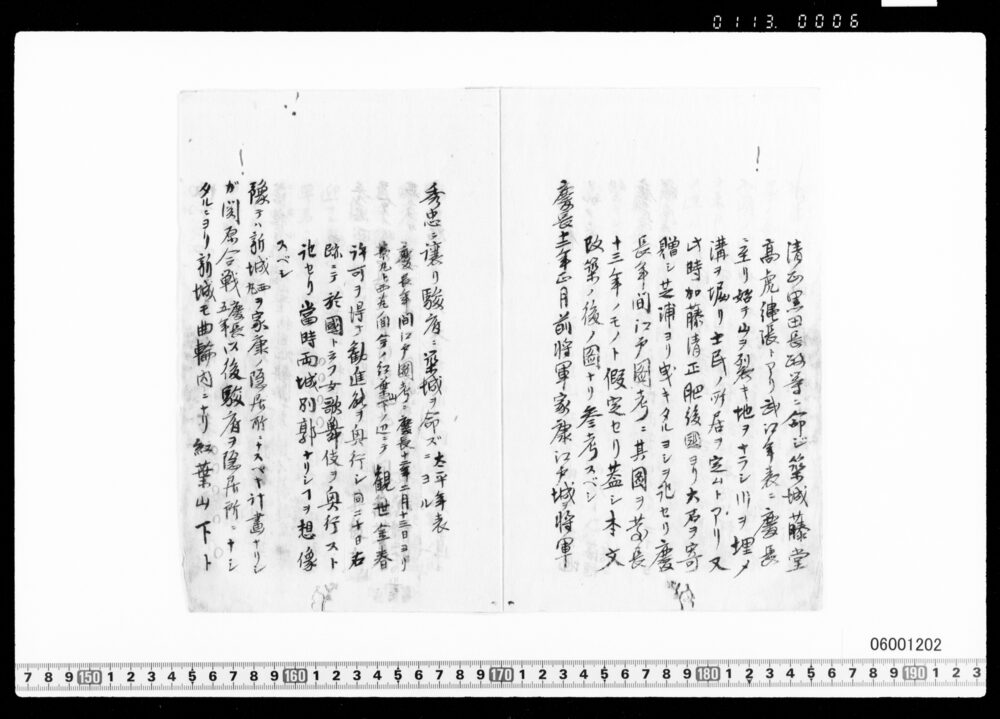 0113. 0006
清正黒田長政等ニ命じ築城藤堂
高虎縄張トアリ武江年表ニ慶長
ニ至リ始テ山ヲ裂キ地ヲナラシ川ヲ埋メ
溝ヲ堀リ士民ノ所居ヲ定ムトアリ又
此時加藤清正肥後國ヨリ大石ヲ寄
贈シ芝浦ヨリ曳キタルヨシヲ記セリ慶
長年間江戸圖考ニ其圖ヲ慶長
十三年ノモノト假定セリ蓋シ本文
改築ノ後ノ圖ナリ参考スベシ
慶長十二年正月前将軍家康江戸城ヲ将軍
秀忠ニ譲リ駿府ニ築城ヲ命ズ太平年表ニヨル
慶長年間江戸圖考ニ慶長十二年二月十三日ヨリ
四日本丸ト西丸ノ間今ノ紅葉山下ノ辺ニテ観世金春
許可ヲ得テ勧進能ヲ興行シ同二十日右
跡ニテ於國ト云フ女歌舞伎ヲ興行スト
記セリ當時両城別郭ナリシヿヲ想像
スベシ
豫テハ新城西丸ヲ家康ノ隠居所ニナスベキ計畫ナリシ
ガ関原合戦慶長五年以後駿府ヲ隠居所ニナシ
タルニヨリ新城モ曲輪内ニナリ紅葉山下ト
06001202
7 8 9 150 1 2 3 4 5 6 7 8 9 160 1 2 3 4 5 6 7 8 9 170 1 2 3 4 5 6 7 8 9 180 1 2 3 4 5 6 7 8 9 190 1 2 3